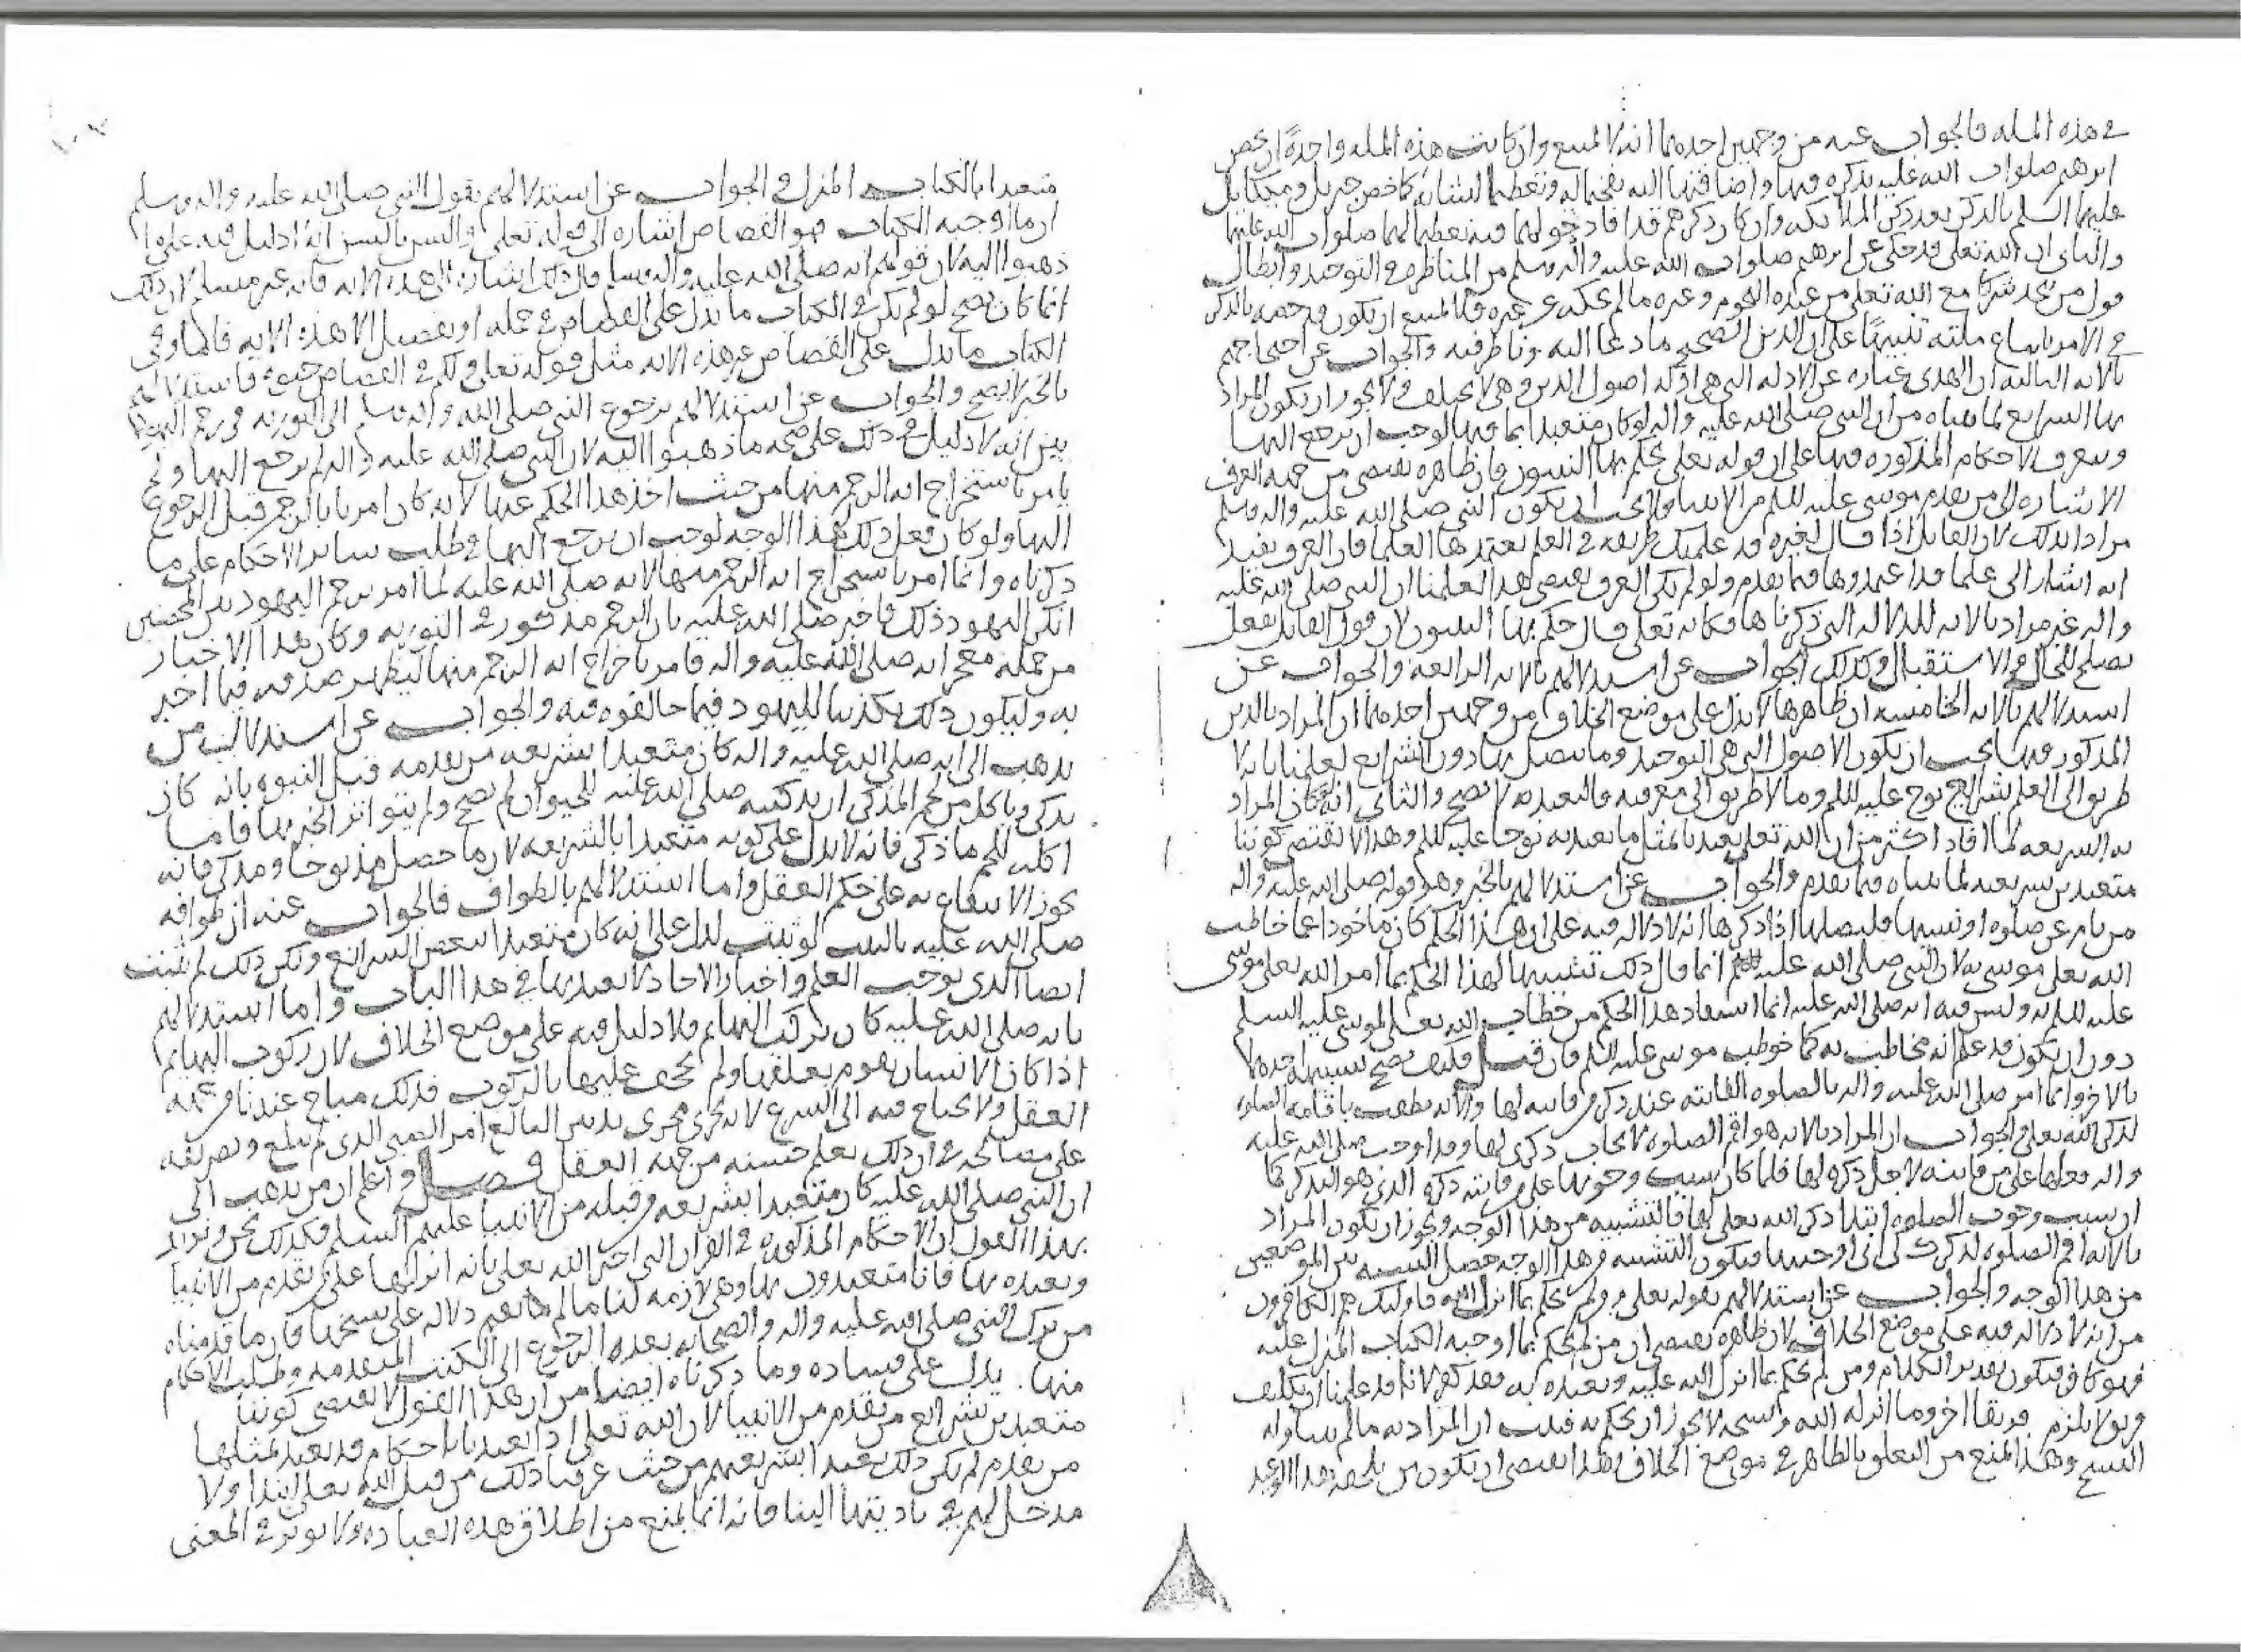 في هذه المله فالجواب عنه من وجهين احدهما انه لا يمتنع وان كانت هذه المله واحدةً ان يخص
ابرهيم صلوات الله عليه بذكره فيها واضافتها اليه تفخيما له وتعظيما لشانه كما خص جبريل وميكايل
عليهما السلم بالذكر بعد ذكر الملايكه وان كان ذكرهم قد افاد دخولهما فيه تعظيما لهما صلوات الله عليهما
والثاني ان الله تعلى قد حكى عن ابرهيم صلوات الله عليه واله وسلم من المناظره في التوحيد وابطال
قول من يتخذ شركا مع الله تعلى من عبده النجوم وغيره ما لم يحكه عن غيره فلا يمتنع ان يكون قد خصه بالذكر
في الامر باتباع ملته تنبيهًا على ان الدين الصحيح ما دعا اليه وناظر فيه والجواب عن احتجاجهم
بالايه الثالثه ان الهدى عباره عن الادله التي هي ادله اصول الدين وهي لا تختلف ولا يجوز ان يكون المراد
بها الشرايع لما بيناه من ان النبي صلى الله عليه واله لو كان متعبدا بما فيها لوجب ان يرجع اليها
ويتعرف الاحكام المذكوره فيها على ان قوله تعلى يحكم بها النبيون فان ظاهره يقتضي من جهه العرف
الاشاره الى من تقدم موسى عليه السلم من الانبيا فلا يجب ان يكون النبي صلى الله عليه واله وسلم
مرادا بذلك لان القايل اذا قال لغيره قد علمتك طريقه في العلم يعتمدها العلما فان العرف يفيد
انه اشار الى علما قد اعتمدوها فيما تقدم ولو لم يكن العرف يقتضي هذا لعلمنا ان النبي صلى الله عليه
واله غير مراد بالايه للدلاله التي ذكرناها فكانه تعلى قال حكم بها النبيون لان قول القايل يفعل
يصلح للحال والاستقبال وكذلك الجواب عن استدلالهم بالايه الرابعه والجواب عن
استدلالهم بالايه الخامسه ان ظاهرها لا يدل على موضع الخلاف من وجهين احدهما ان المراد بالدين
المذكور فيها يجب ان يكون الاصول التي هي التوحيد وما يتصل بها دون الشرايع لعلمنا بانه لا
طريق الى العلم بشرايع نوح عليه السلم وما لا طريق الى معرفته فالتعبد به لا يصح والثاني انه لو كان المراد
به الشريعه لما افاد اكثر من ان الله تعلى تعبدنا بمثل ما تعبد به نوحا عليه السلم وهذا لا يقتضي كوننا
متعبدين بشريعته لما بيناه فيما تقدم والجواب عن استدلالهم بالخبر وهو قوله صلى الله عليه واله
من نام عن صلوه او نسيها فليصلها اذا ذكرها انه لا دلاله فيه على ان هذا الحكم كان ماخوذا عما خاطب
الله تعلى موسى به لان النبي صلى الله عليه انما قال ذلك تشبيها لهذا الحكم بما امر الله تعلى موسى
عليه السلم به وليس فيه انه صلى الله عليه انما استفاد هذا الحكم من خطاب الله تعلى لموسى عليه السلم
دون ان يكون قد علم انه مخاطب به كما خوطب موسى عليه السلم فان قيل فكيف يصح تشبيه احدهما
بالاخر وانما امر صلى الله عليه واله بالصلوه الفايته عند ذكر من فاتته لها والايه نطقت باقامه الصلوه
لذكر الله تعلى فالجواب ان المراد بالايه هو اقم الصلوه لايجاب ذكري لها وقد اوجب صلى الله عليه
واله فعلها على من فاتته لاجل ذكره لها فلما كان سبب وجوبها على من فاتته ذكره الذي هو التذكر كما
ان سبب وجوب الصلوه ابتدا ذكر الله تعلى لها فالتشبيه من هذا الوجه ويجوز ان يكون المراد
بالايه اقم الصلوه لذكرك لي اني اوجبتها فيكون التشبيه من هذا الوجه فحصل التشبيه بين الموضعين
من هذا الوجه والجواب عن استدلالهم بقوله تعلى ومن لم يحكم بما انزل الله فاوليك هم الكافرون
من انه لا دلاله فيه على موضع الخلاف لان ظاهره يقتضي ان من لم يحكم بما اوجبه الكتاب المنزل عليه
فهو كافر فيكون تقدير الكلام ومن لم يحكم بما انزل الله عليه وتعبده به فقد كفر لانا قد علمنا ان تكليف
فريق لا يلزم فريقا اخر وما انزله الله ونسخه لا يجوز ان يحكم به فثبت ان المراد به ما لم يتناوله
النسخ وهذا يمنع من التعلق بالظاهر في موضع الخلاف لان هذا يقتضي ان يكون من يلحقه هذا الوعيد
متعبدا بالكتاب المنزل والجواب عن استدلالهم بقول النبي صلى الله عليه واله وسلم
ان ما اوجبه الكتاب فهو القصاص اشاره الى قوله تعلى والسن بالسن انه لا دليل فيه على ما
ذهبوا اليه لان قولهم انه صلى الله عليه واله وسلم قال ذلك اشاره الى هذه الايه فانه غير مسلم لان ذلك
انما كان يصح لو لم يكن في الكتاب ما يدل على القصاص في جمله او تفصيل الا هذه الايه فاما وفي
الكتاب ما يدل على القصاص غير هذه الايه مثل قوله تعلى ولكم في القصاص حيوة فاستدلالهم
بالخبر لا يصح والجواب عن استدلالهم برجوع النبي صلى الله عليه واله وسلم الى التوريه في رجم اليهوديين
بين انه لا دليل في ذلك على صحه ما ذهبوا اليه لان النبي صلى الله عليه واله لم يرجع اليها ولم
يامر باستخراج ايه الرجم منها من حيث اخذ هذا الحكم عنها لانه كان امر بالرجم قبل الرجوع
اليها ولو كان فعل ذلك لهذا الوجه لوجب ان يرجع اليها في طلب ساير الاحكام على ما
ذكرناه وانما امر باستخراج ايه الرجم منها لانه صلى الله عليه لما امر برجم اليهوديين المحصنين
انكر اليهود ذلك فاخبر صلى الله عليه بان الرجم مذكور في التوريه وكان هذا الاخبار
من جمله معجزاته صلى الله عليه واله فامر باخراج ايه الرجم منها ليظهر صدقه فيما اخبر
به وليكون ذلك تكذيبا لليهود فيما خالفوه فيه والجواب عن استدلال من
يذهب الى انه صلى الله عليه واله كان متعبدا بشريعه من تقدمه قبل النبوه بانه كان
يذكي وياكل من لحم المذكى ان تذكيته صلى الله عليه للحيوان لم يصح ولم يتواتر الخبر بها فاما
اكله للحم ما ذكي فانه لا يدل على كونه متعبدا بالشريعه لان ما حصل مذبوحا ومذكى فانه
يجوز الانتفاع به على حكم العقل واما استدلالهم بالطواف فالجواب عنه ان طوافه
صلى الله عليه بالبيت لو ثبت لدل على انه كان متعبدا ببعض الشرايع ولكن ذلك لم يثبت
ايضا الذي يوجب العلم واخبار الاحاد لا نعتد بها في هذا الباب واما استدلالهم
بانه صلى الله عليه كان يركب البهايم فلا دليل فيه على موضع الخلاف لان ركوب البهايم
اذا كان الانسان يقوم بعلفها ولم يجحف عليها بالركوب فذلك مباح عندنا من جهه
العقل ولا يحتاج فيه الى الشرع لانه يجري مجرى تدبير البالغ امر الصبي الذي لم يبلغ وتصريفه
على مصالحه في ان ذلك يعلم حسنه من جهه العقل فصل واعلم ان من يذهب الى
ان النبي صلى الله عليه كان متعبدا بشريعه من قبله من الانبيا عليهم السلم فكذلك نحن ونريد
بهذا القول ان الاحكام المذكوره في القران التي اخبر الله تعلى بانه انزلها على من تقدم من الانبيا
وتعبده بها فانا متعبدون بها وهي لازمه لنا ما لم تقم دلاله على نسخها فان ما قدمناه
من ترك النبي صلى الله عليه واله والصحابه بعده الرجوع الى الكتب المتقدمه وطلب الاحكام
منها يدل على فساده وما ذكرناه ايضا من ان هذا القول لا يقتضي كوننا
متعبدين بشرايع من تقدم من الانبيا لان الله تعلى اذا تعبدنا باحكام قد تعبد بمثلها
من تقدم لم يكن ذلك تعبدا بشريعتهم من حيث عرفنا ذلك من قبل الله تعلى ابتدا ولا
مدخل لهم في تاديتها الينا فانه انما يمنع من اطلاق هذه العباره ولا يوثر في المعنى